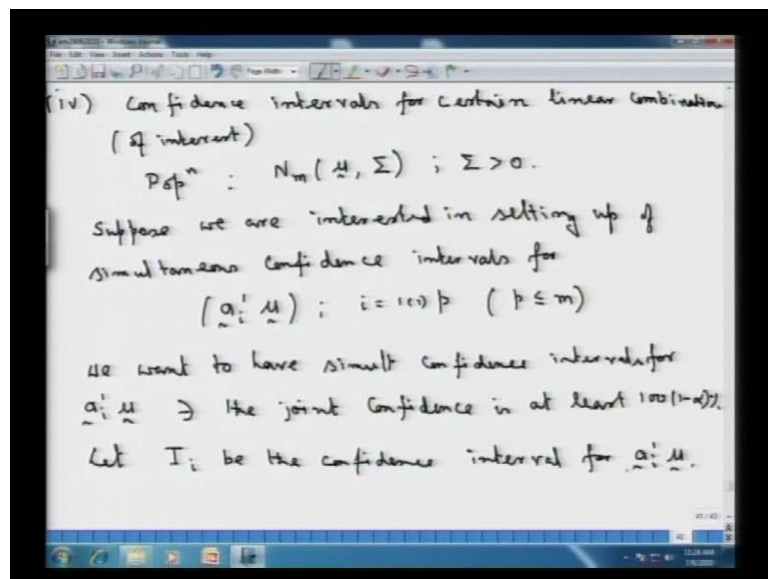 File Edit View Insert Actions Tools Help
Page Width
(iv) Confidence intervals for certain linear combination
(of interest)
Popⁿ : N_m(μ, Σ) ; Σ > 0.
Suppose we are interested in setting up of
simultaneous confidence intervals for
(a_i' μ) ; i = 1(1) p (p ≤ m)
We want to have simult confidence intervals for
a_i' μ ∋ the joint confidence is at least 100(1-α)%.
Let I_i be the confidence interval for a_i' μ.